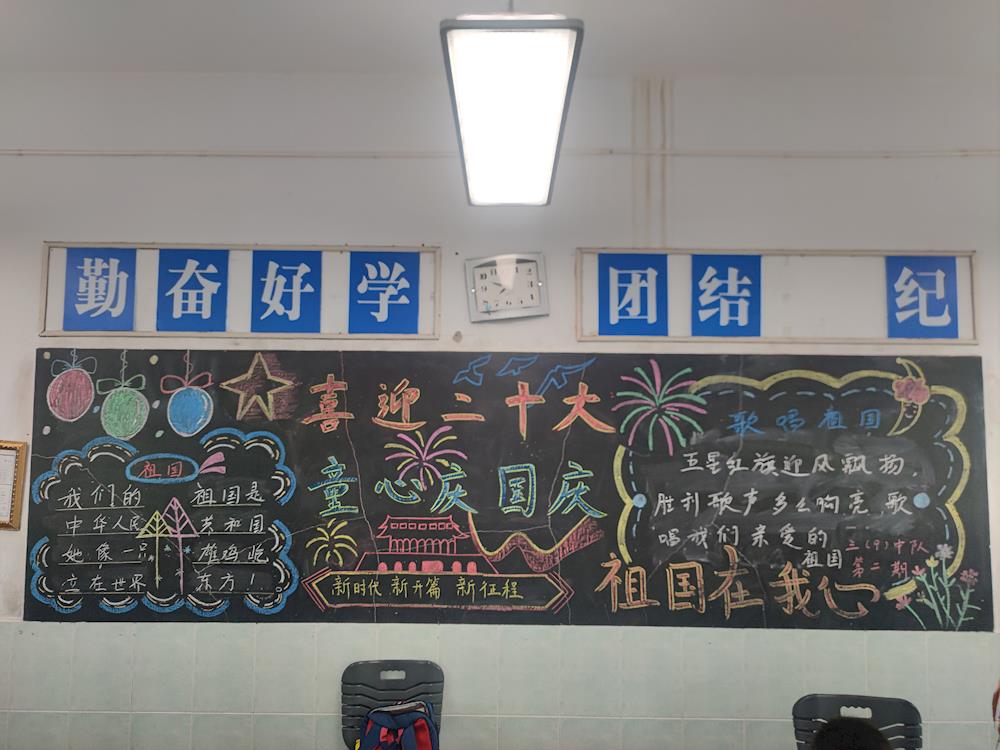 勤奋好学
团结 纪
喜迎二十大
童心庆国庆
祖国
我们的 祖国是
中华人民 共和国
她像一只 雄鸡屹
立在世界 东方！
新时代 新开篇 新征程
歌唱祖国
五星红旗迎风飘扬，
胜利歌声多么响亮，歌
唱我们亲爱的
祖国
三（9）中队
第二期
祖国在我心